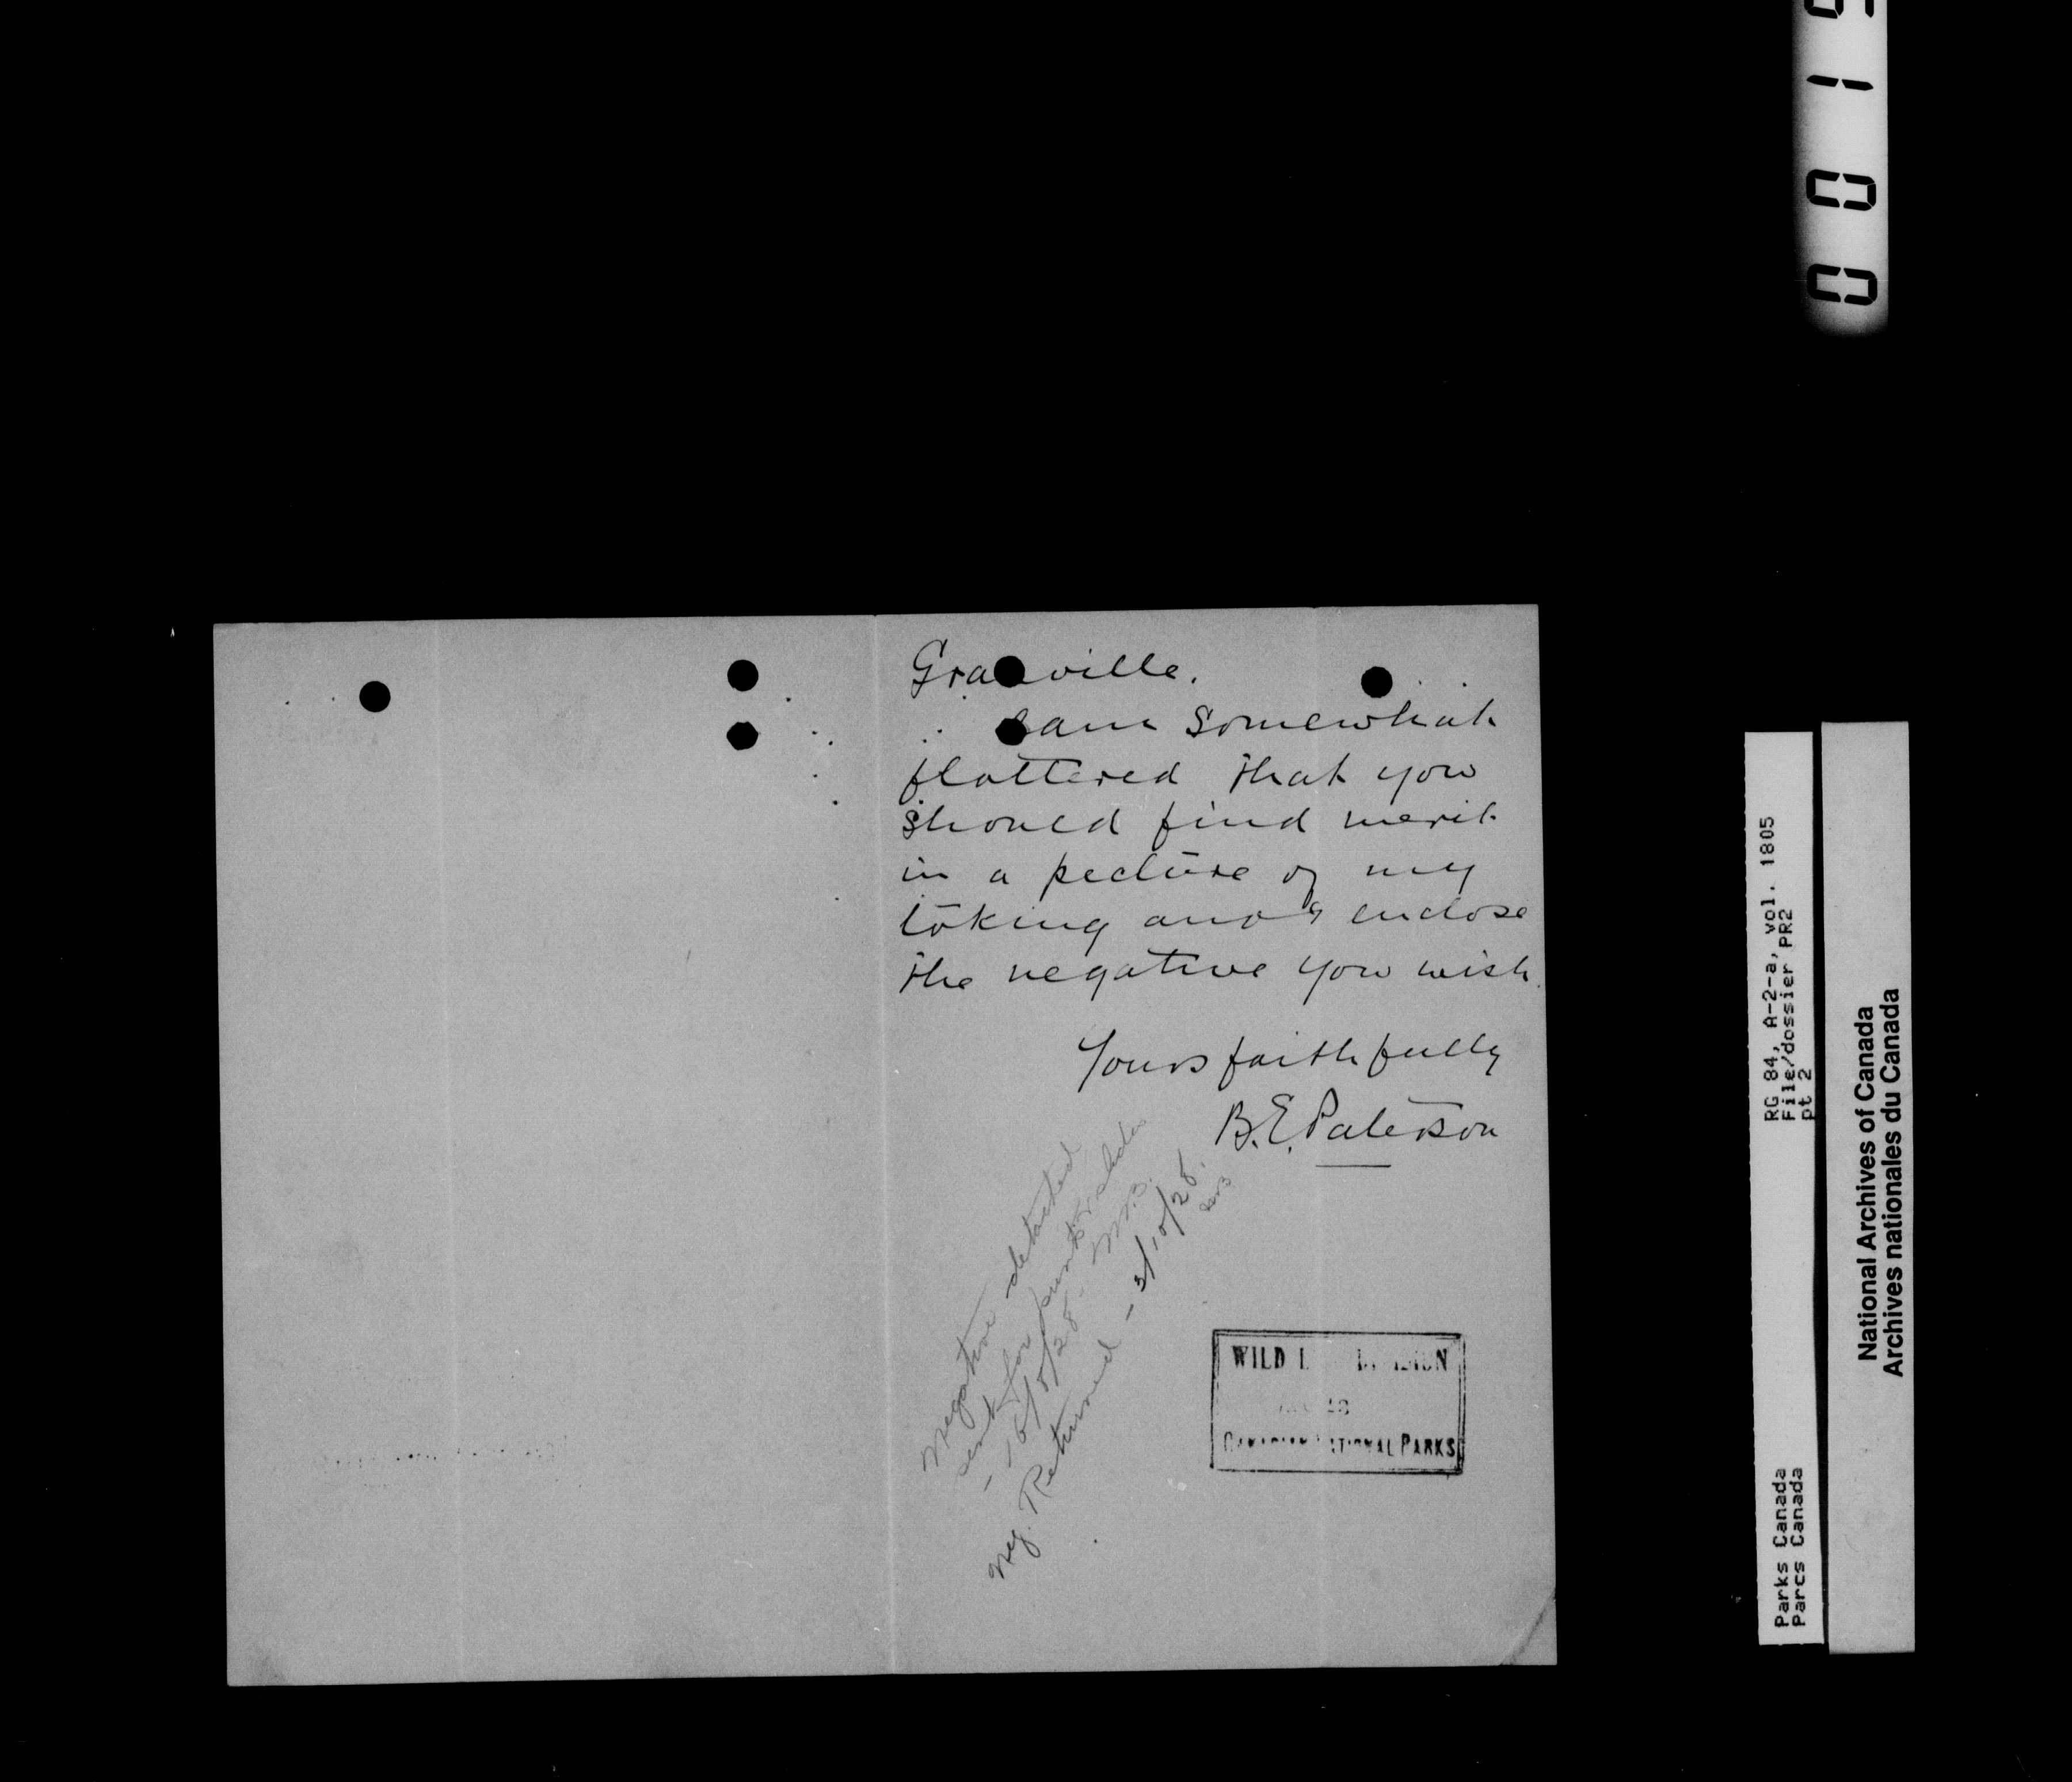 Granville.
I am somewhat
flattered that you
should find merit
in a picture of my
taking and I enclose
the negative you wish.
Yours faithfully
B. E. Paterson
Negative detached
sent for prints & slides
- 16/8/28 - M.B.
Neg. Returned - 3/10/28.
WILD
CANADIAN NATIONAL PARKS
0 0 1 5
RG 84, A-2-a, vol. 1805
File/dossier PR2
pt 2
Parks Canada
Parcs Canada
National Archives of Canada
Archives nationales du Canada